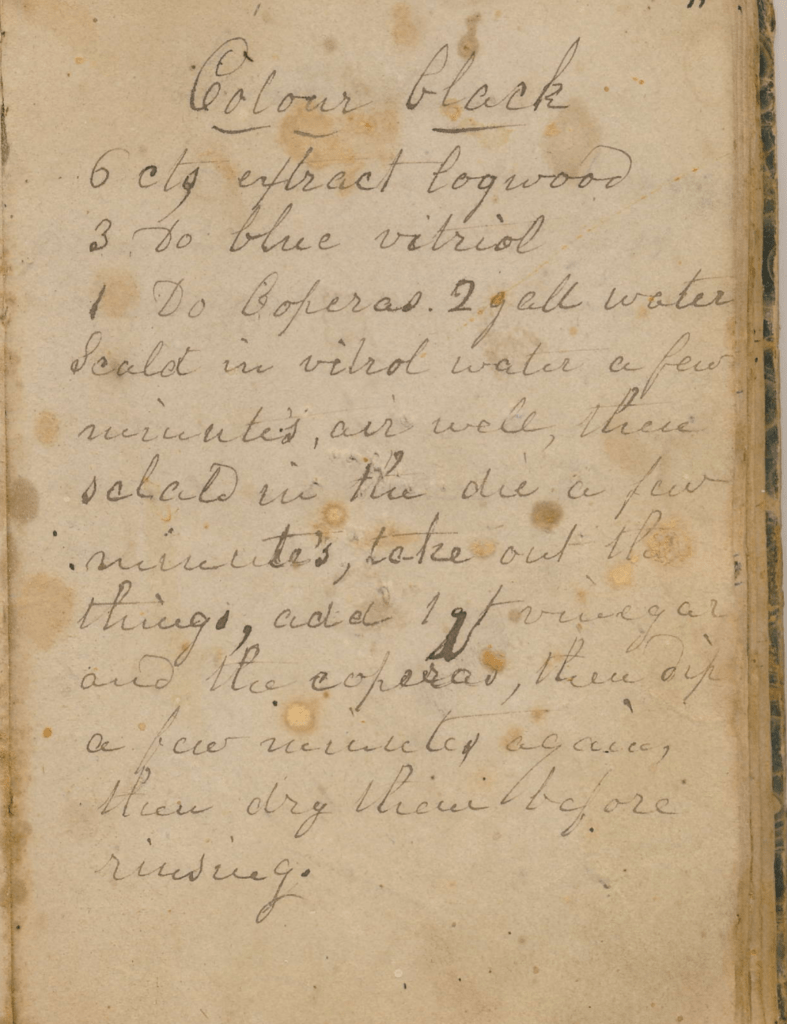 Colour black
6 cts extract logwood
3 Do blue vitriol
1 Do Coperas. 2 gall water
Scald in vitrol water a few
minute's, air well, then
sclald in the die a few
minute's, take out the
things, add 1 qt vinegar
and the coperas, then dip
a few minutes again,
then dry them before
rinsing.